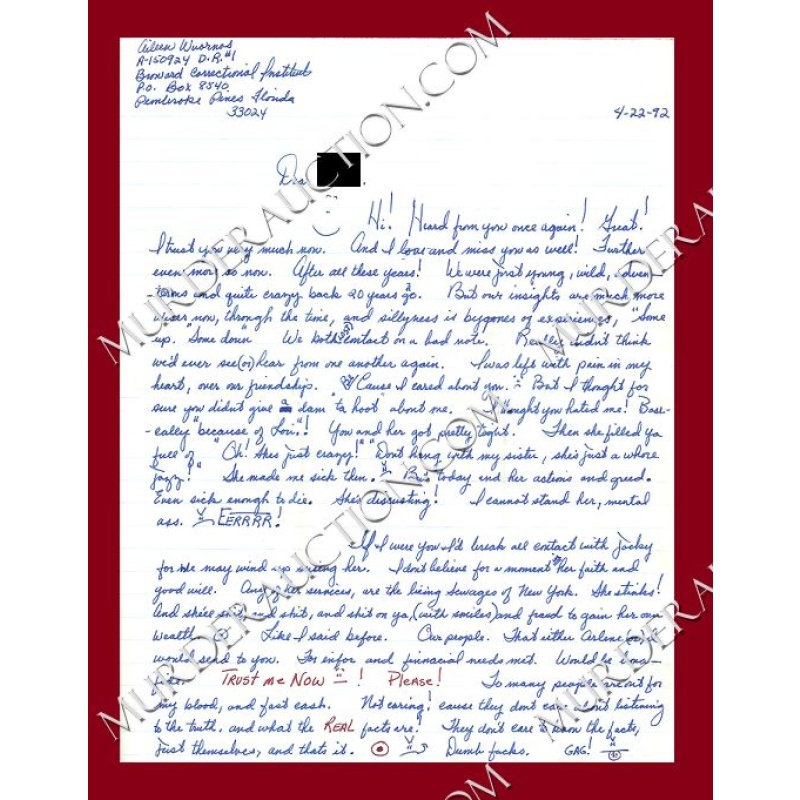 Aileen Wuornos
A-150924 D.R. #1
Broward Correctional Institute
P.O. Box 8540
Pembroke Pines Florida
33024
4-22-92
Dear
Hi! Heard from you once again! Great!
I trust you very much now. And I love and miss you as well! Further
even more so now. After all these years! We were just young, wild,
and quite crazy back 20 years ago. But our insights are much more
wiser now, through the time, and sillyness is bygones of experiences, "Some
up. "Some down" We both contact on a bad note. Really didn't think
we'd ever see (or) hear from one another again. I was left with pain in my
heart, over our friendship. 'Cause I cared about you. But I thought for
sure you didn't give a dam "ta hoot" about me. I thought you hated me! Basi-
-cally "because of Lori"! You and her got pretty tight. Then she filled ya
full of "Oh! She's just crazy!" "Don't hang with my sister, she's just a whore
jazz!" She made me sick then. But today and her actions and greed.
Even sick enough to die. She's disgusting! I cannot stand her, mental
ass. EERRRR!
If I were you I'd break all contact with Jacky
for she may wind up suing her. I don't believe for a moment her faith and
good will. Any of her services, are the living sewages of New York. She stinks!
And she'll and shit, and shit on ya, (with smiles) and fraud to gain her own
wealth. Like I said before. Our people. That either Arlene (or) I
would send to you. For infor and finnacial needs met. Would be
TRUST me NOW! Please! To many people are out for
my blood, and fast cash. Not caring! cause they don't care listening
to the truth, and what the REAL facts are! They don't care to know the facts,
just themselves, and thats it. Dumb fucks. GAG!
MURDERAUCTION.COM
MURDERAUCTION.COM
MURDERAUCTION.COM